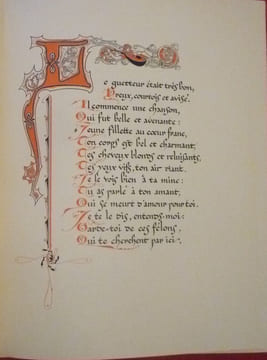 Le guetteur était très bon,
Preux, courtois et avisé.
Il commence une chanson,
Qui fut belle et avenante :
"Jeune fillette au coeur franc,
Ton corps est bel et charmant,
Tes cheveux blonds et reluisants,
Tes yeux vifs, ton air riant.
Je le vois bien à ta mine :
Tu as parlé à ton amant,
Qui se meurt d'amour pour toi.
Je te le dis, entends-moi :
Garde-toi de ces félons,
Qui te cherchent par ici".